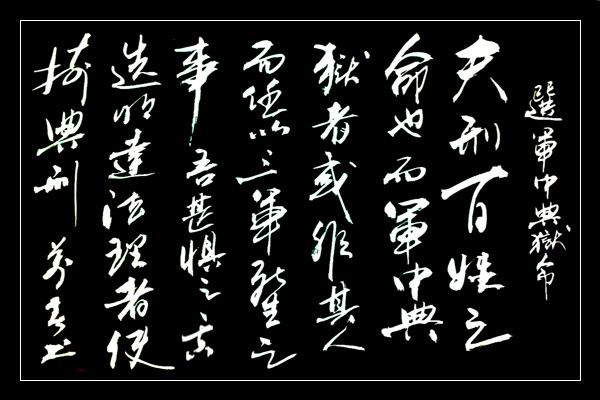 選軍中典獄命
夫刑百姓之
命也而軍中典
獄者或非其人
而任以三軍死生之
事 吾甚懼之 其
选明達法理者使
持典刑 书